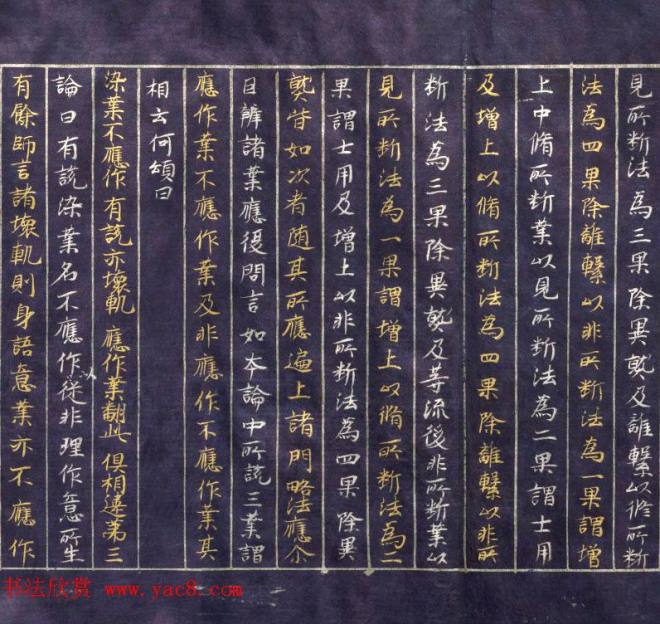 見所断法為三果除異熟及離繫以脩所断
法為四果除離繫以非所断法為一果謂增
上中脩所断業以見所断法為二果謂士用
及增上以脩所断法為四果除離繫以非所
断法為三果除異熟及等流後非所断業以
見所断法為一果謂增上以脩所断法為二
果謂士用及增上以非所断法為四果除異
熟皆如次者随其所應遍上諸門略法應尒
因辨諸業應復問言如本論中所說三業謂
應作業不應作業及非應作不應作業其
相云何頌曰
染業不應作有說亦壞軌應作業翻此俱相違第三
論曰有說染業名不應作以從非理作意所生
有餘師言諸壞軌則身語意業亦不應作
书法欣赏 www.yac8.com